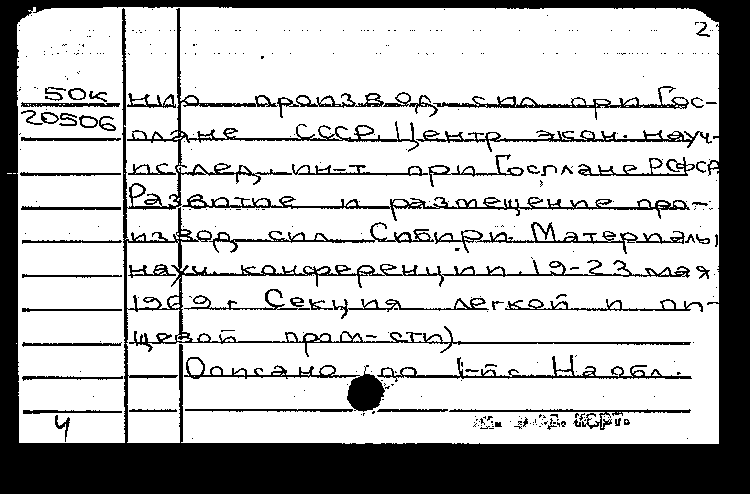 2
50к нию производ. сил при Гос-
20506 плане СССР, Центр. экон. науч.-
исслед. ин-т при Госплане РСФСР
Развитие и размещение про-
извод. сил Сибири. Материалы
науч. конференции. 19-23 мая
1969 г. Секция легкой и пи-
щевой пром-сти).
Описано по 1-й с. На обл.
4